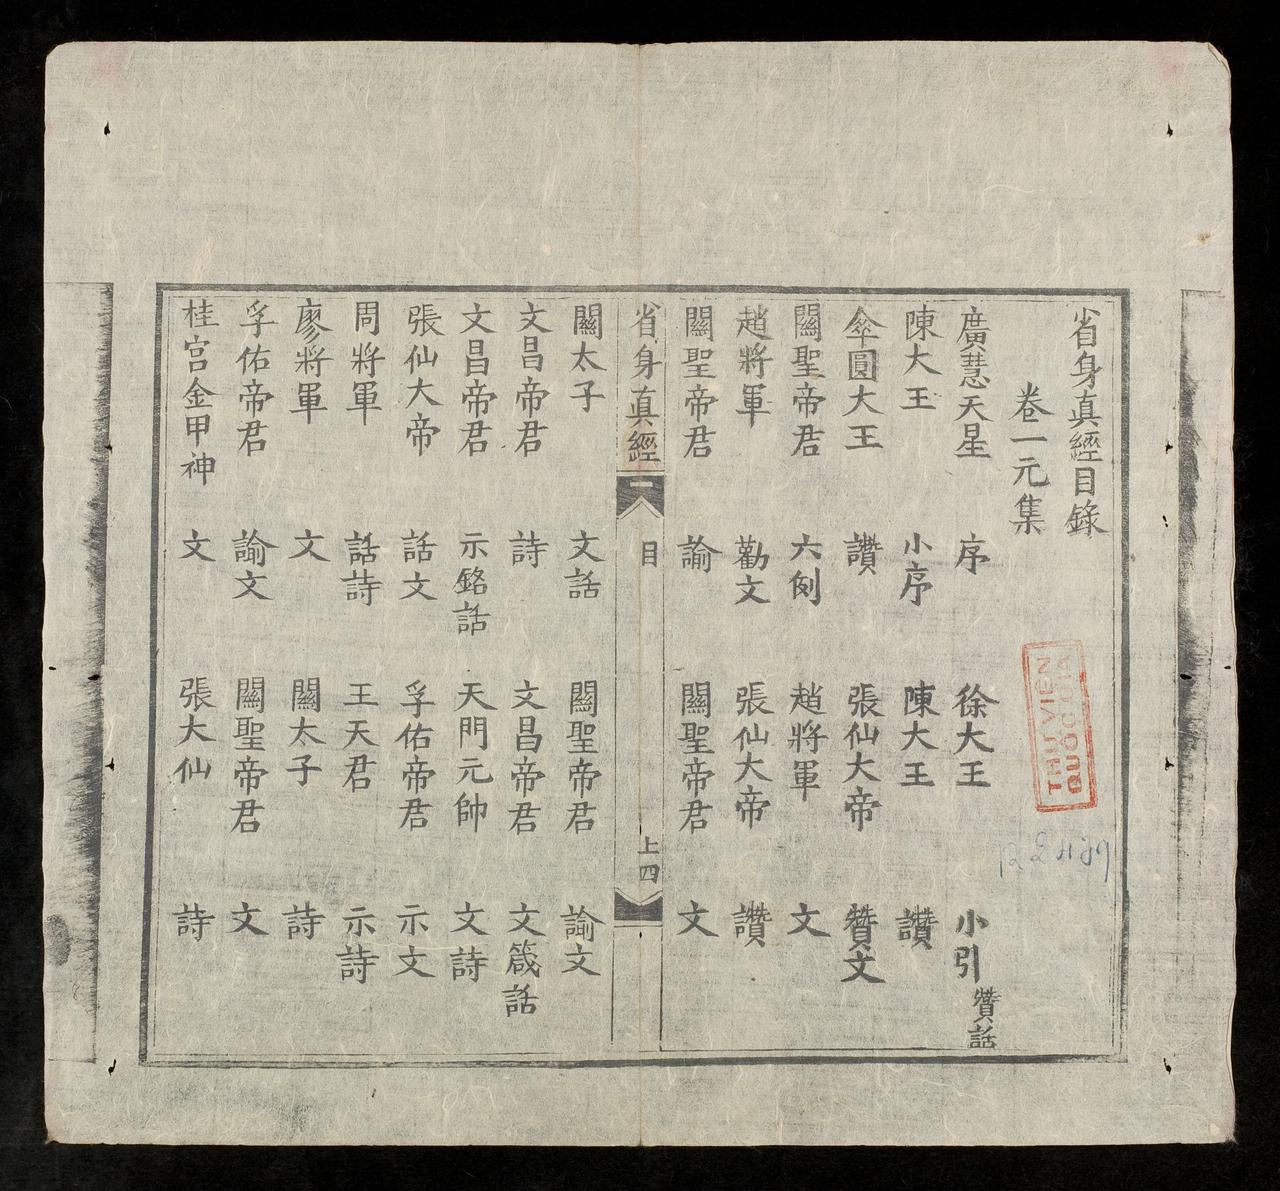 省身真經目錄
卷一元集
廣慧天星 序 徐大王 小引 贊話
陳大王 小序 陳大王 讚
傘圓大王 讚 張仙大帝 贊文
關聖帝君 六例 趙將軍 文
趙將軍 勸文 張仙大帝 讚
關聖帝君 諭 關聖帝君 文
省身真經 一 目 上四
關太子 文話 關聖帝君 諭文
文昌帝君 詩 文昌帝君 文箴話
文昌帝君 示銘話 天門元帥 文詩
張仙大帝 話文 孚佑帝君 示文
周將軍 話詩 王天君 示詩
廖將軍 文 關太子 詩
孚佑帝君 諭文 關聖帝君 文
桂宮金甲神 文 張大仙 詩
THƯ VIỆN
QUỐC GIA